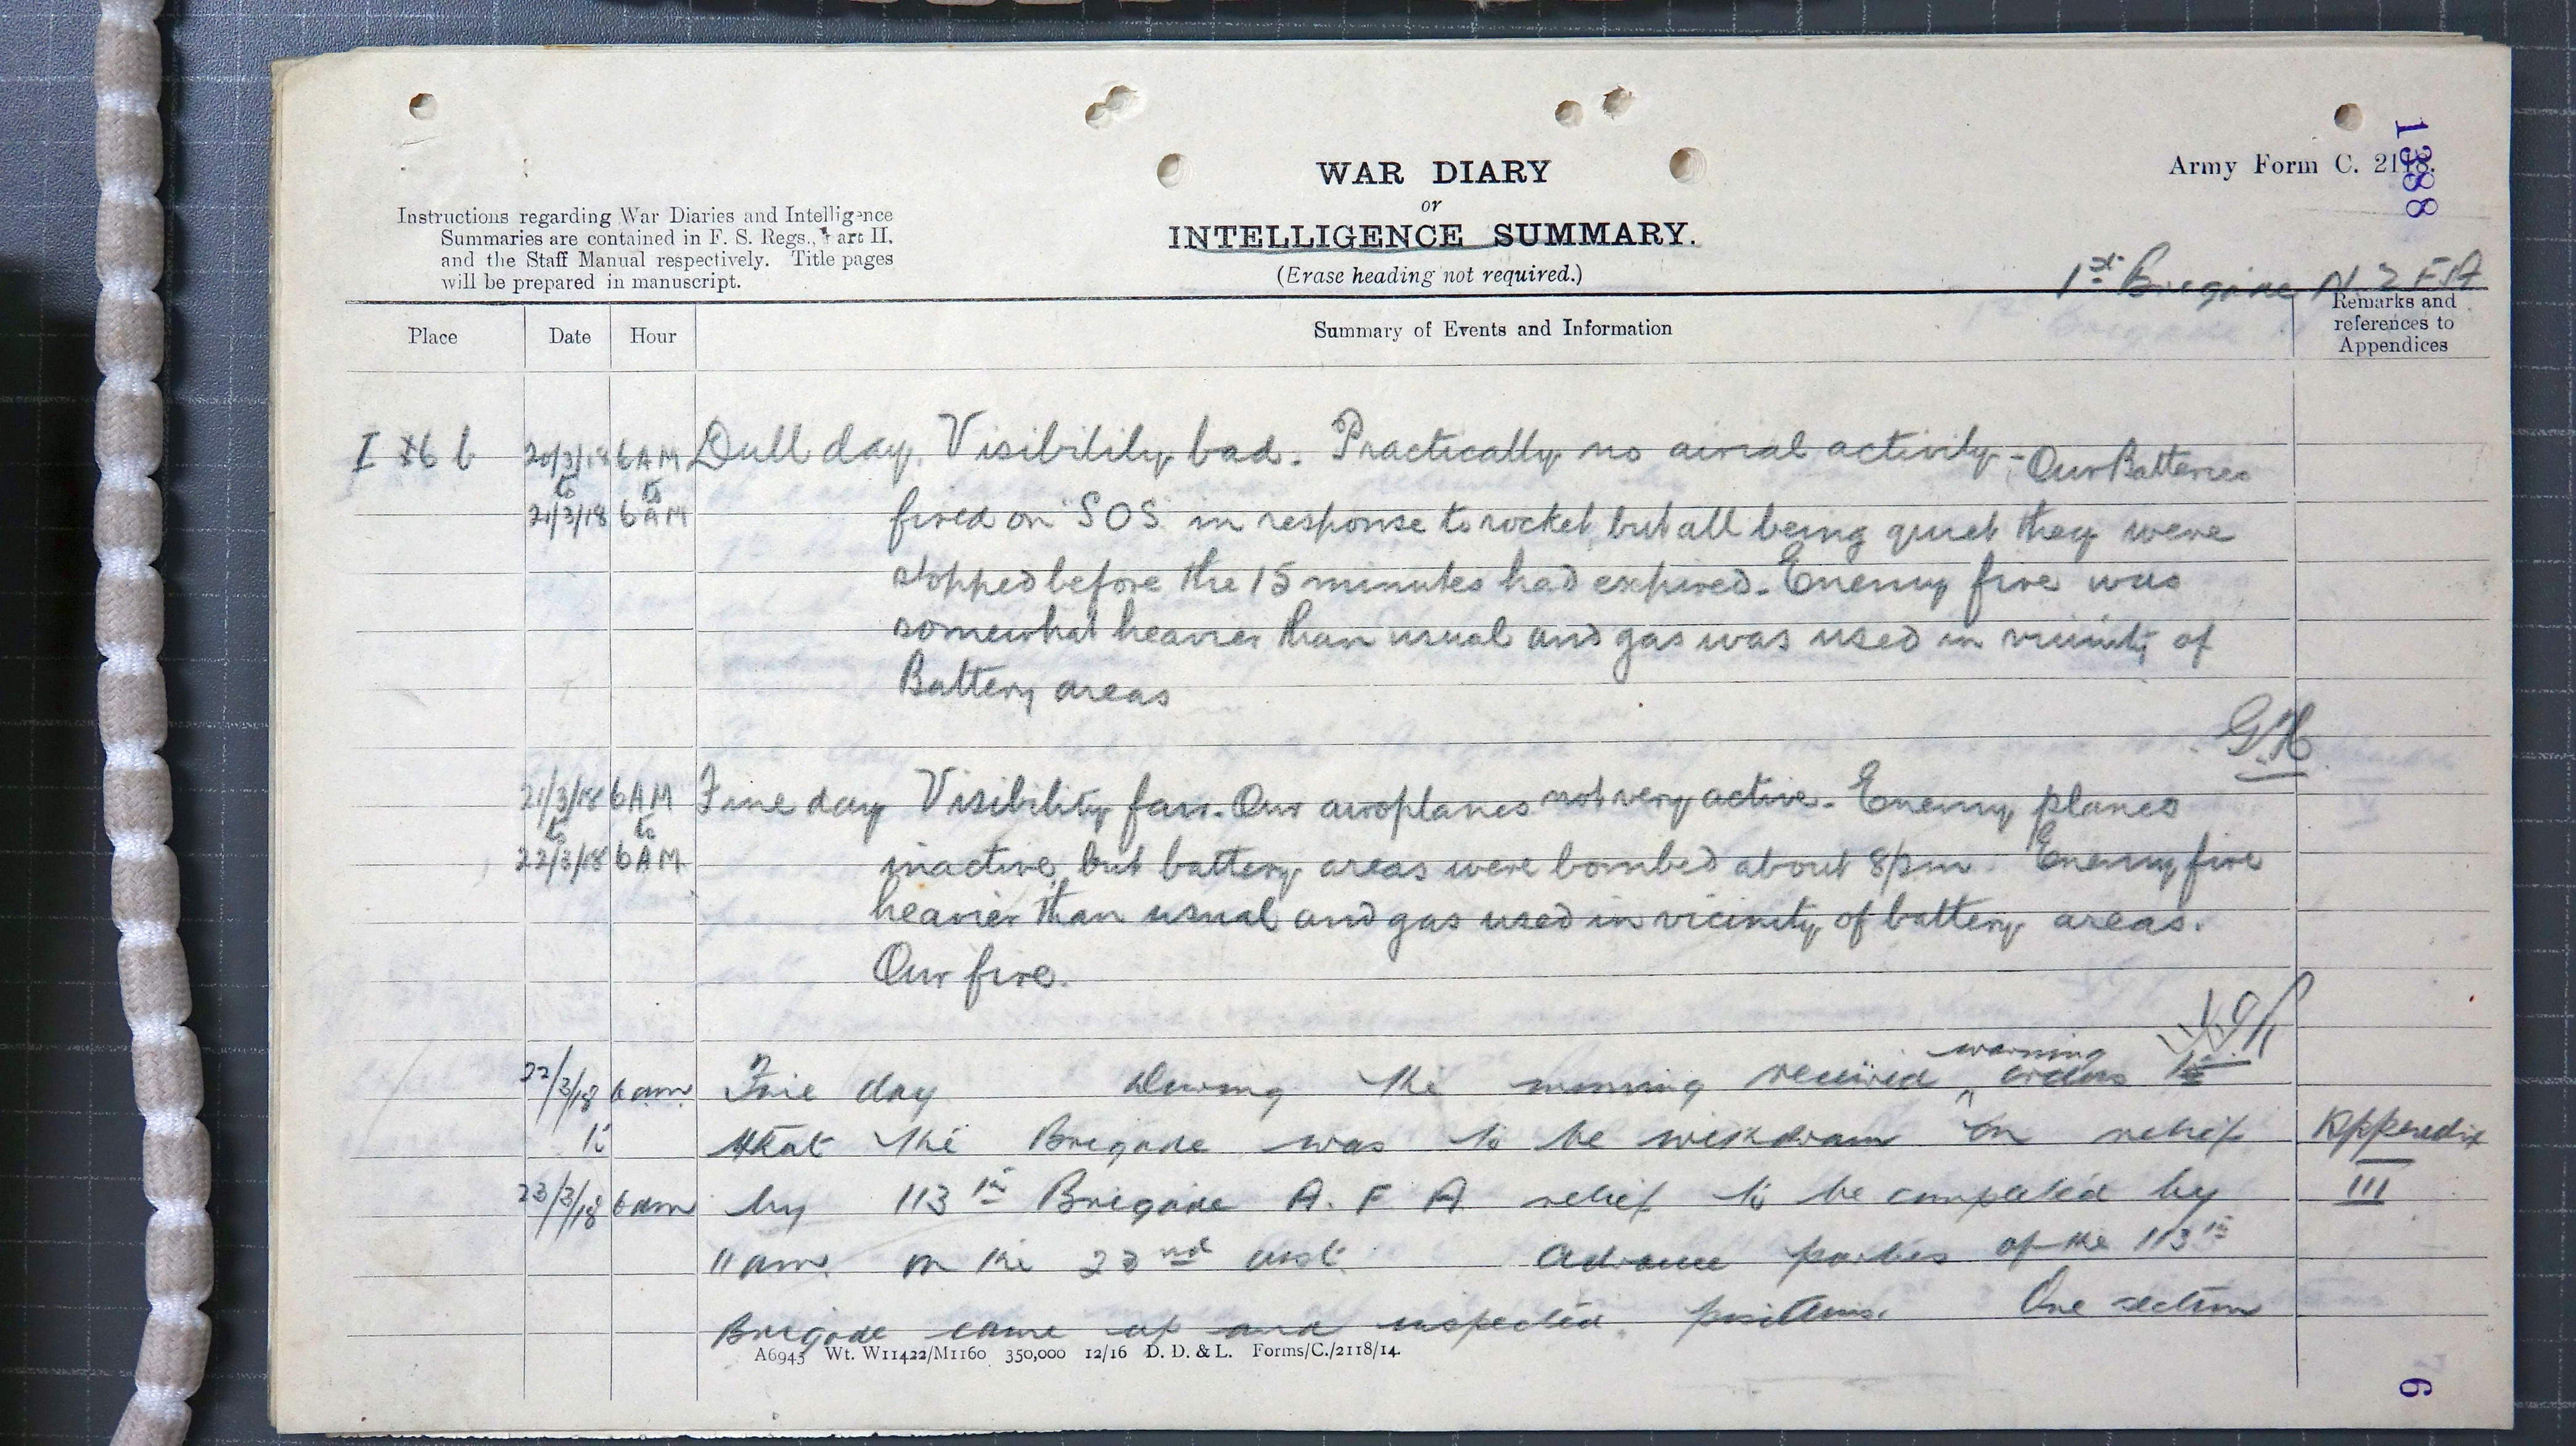 1388
Army Form C. 2118.
WAR DIARY
or
INTELLIGENCE SUMMARY.
(Erase heading not required.)
Instructions regarding War Diaries and Intelligence
Summaries are contained in F. S. Regs., Part II.
and the Staff Manual respectively. Title pages
will be prepared in manuscript.
1st Brigade N Z F A
Place
Date
Hour
Summary of Events and Information
Remarks and
references to
Appendices
I 6 b
20/3/18 6AM Dull day. Visibility bad. Practically no airial activity - Our Batteries
to to
21/3/18 6AM fired on "SOS" in response to rocket, but all being quiet they were
stopped before the 15 minutes had expired. Enemy fire was
somewhat heavier than usual and gas was used in vicinity of
Battery areas
GH
21/3/18 6AM Fine day Visibility fair. Our aeroplanes not very active. Enemy planes
to to
22/3/18 6AM inactive, but battery areas were bombed about 8pm. Enemy fire
heavier than usual and gas used in vicinity of battery areas.
Our fire.
22/3/18 6am Fine day During the morning received warning orders
to that the Brigade was to be withdrawn on relief Appendix
23/3/18 6am by 113th Brigade A. F. A relief to be completed by III
11am. on the 23nd inst. Advance parties of the 113th
Brigade came up and inspected positions. One section
A6945 Wt. W11422/M1160 350,000 12/16 D. D. & L. Forms/C./2118/14.
6